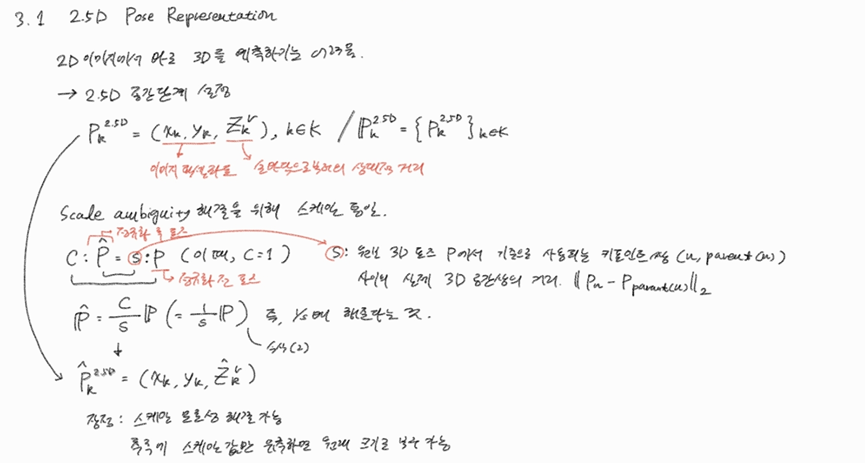 3.1 2.5D Pose Representation
2D 이미지에서 바로 3D를 예측하기는 어려움.
→ 2.5D 중간단계 설정
P_k^2.5D = (x_k, y_k, Z_k^r), k∈K / ℙ_k^2.5D = {P_k^2.5D}_k∈K
이미지 픽셀좌표 루트으로부터의 상대적 거리
Scale ambiguity 해결을 위해 스케일 통일.
정규화 후 포즈
C : P̂ = s : P (이때, C=1) s: 원본 3D 포즈 P에서 기준으로 사용하는 키포인트쌍 (n, parent(n))
정규화 전 포즈 사이의 실제 3D 공간상의 거리. ‖P_n - P_parent(n)‖_2
ℙ̂ = C/s ℙ (= 1/s ℙ) 즉, 1/s배 해준다는 것.
수식(2)
P̂_k^2.5D = (x_k, y_k, Ẑ_k^r)
장점: 스케일 모호성 해결 가능
스케일 값만 예측하면 원래 크기로 복구 가능